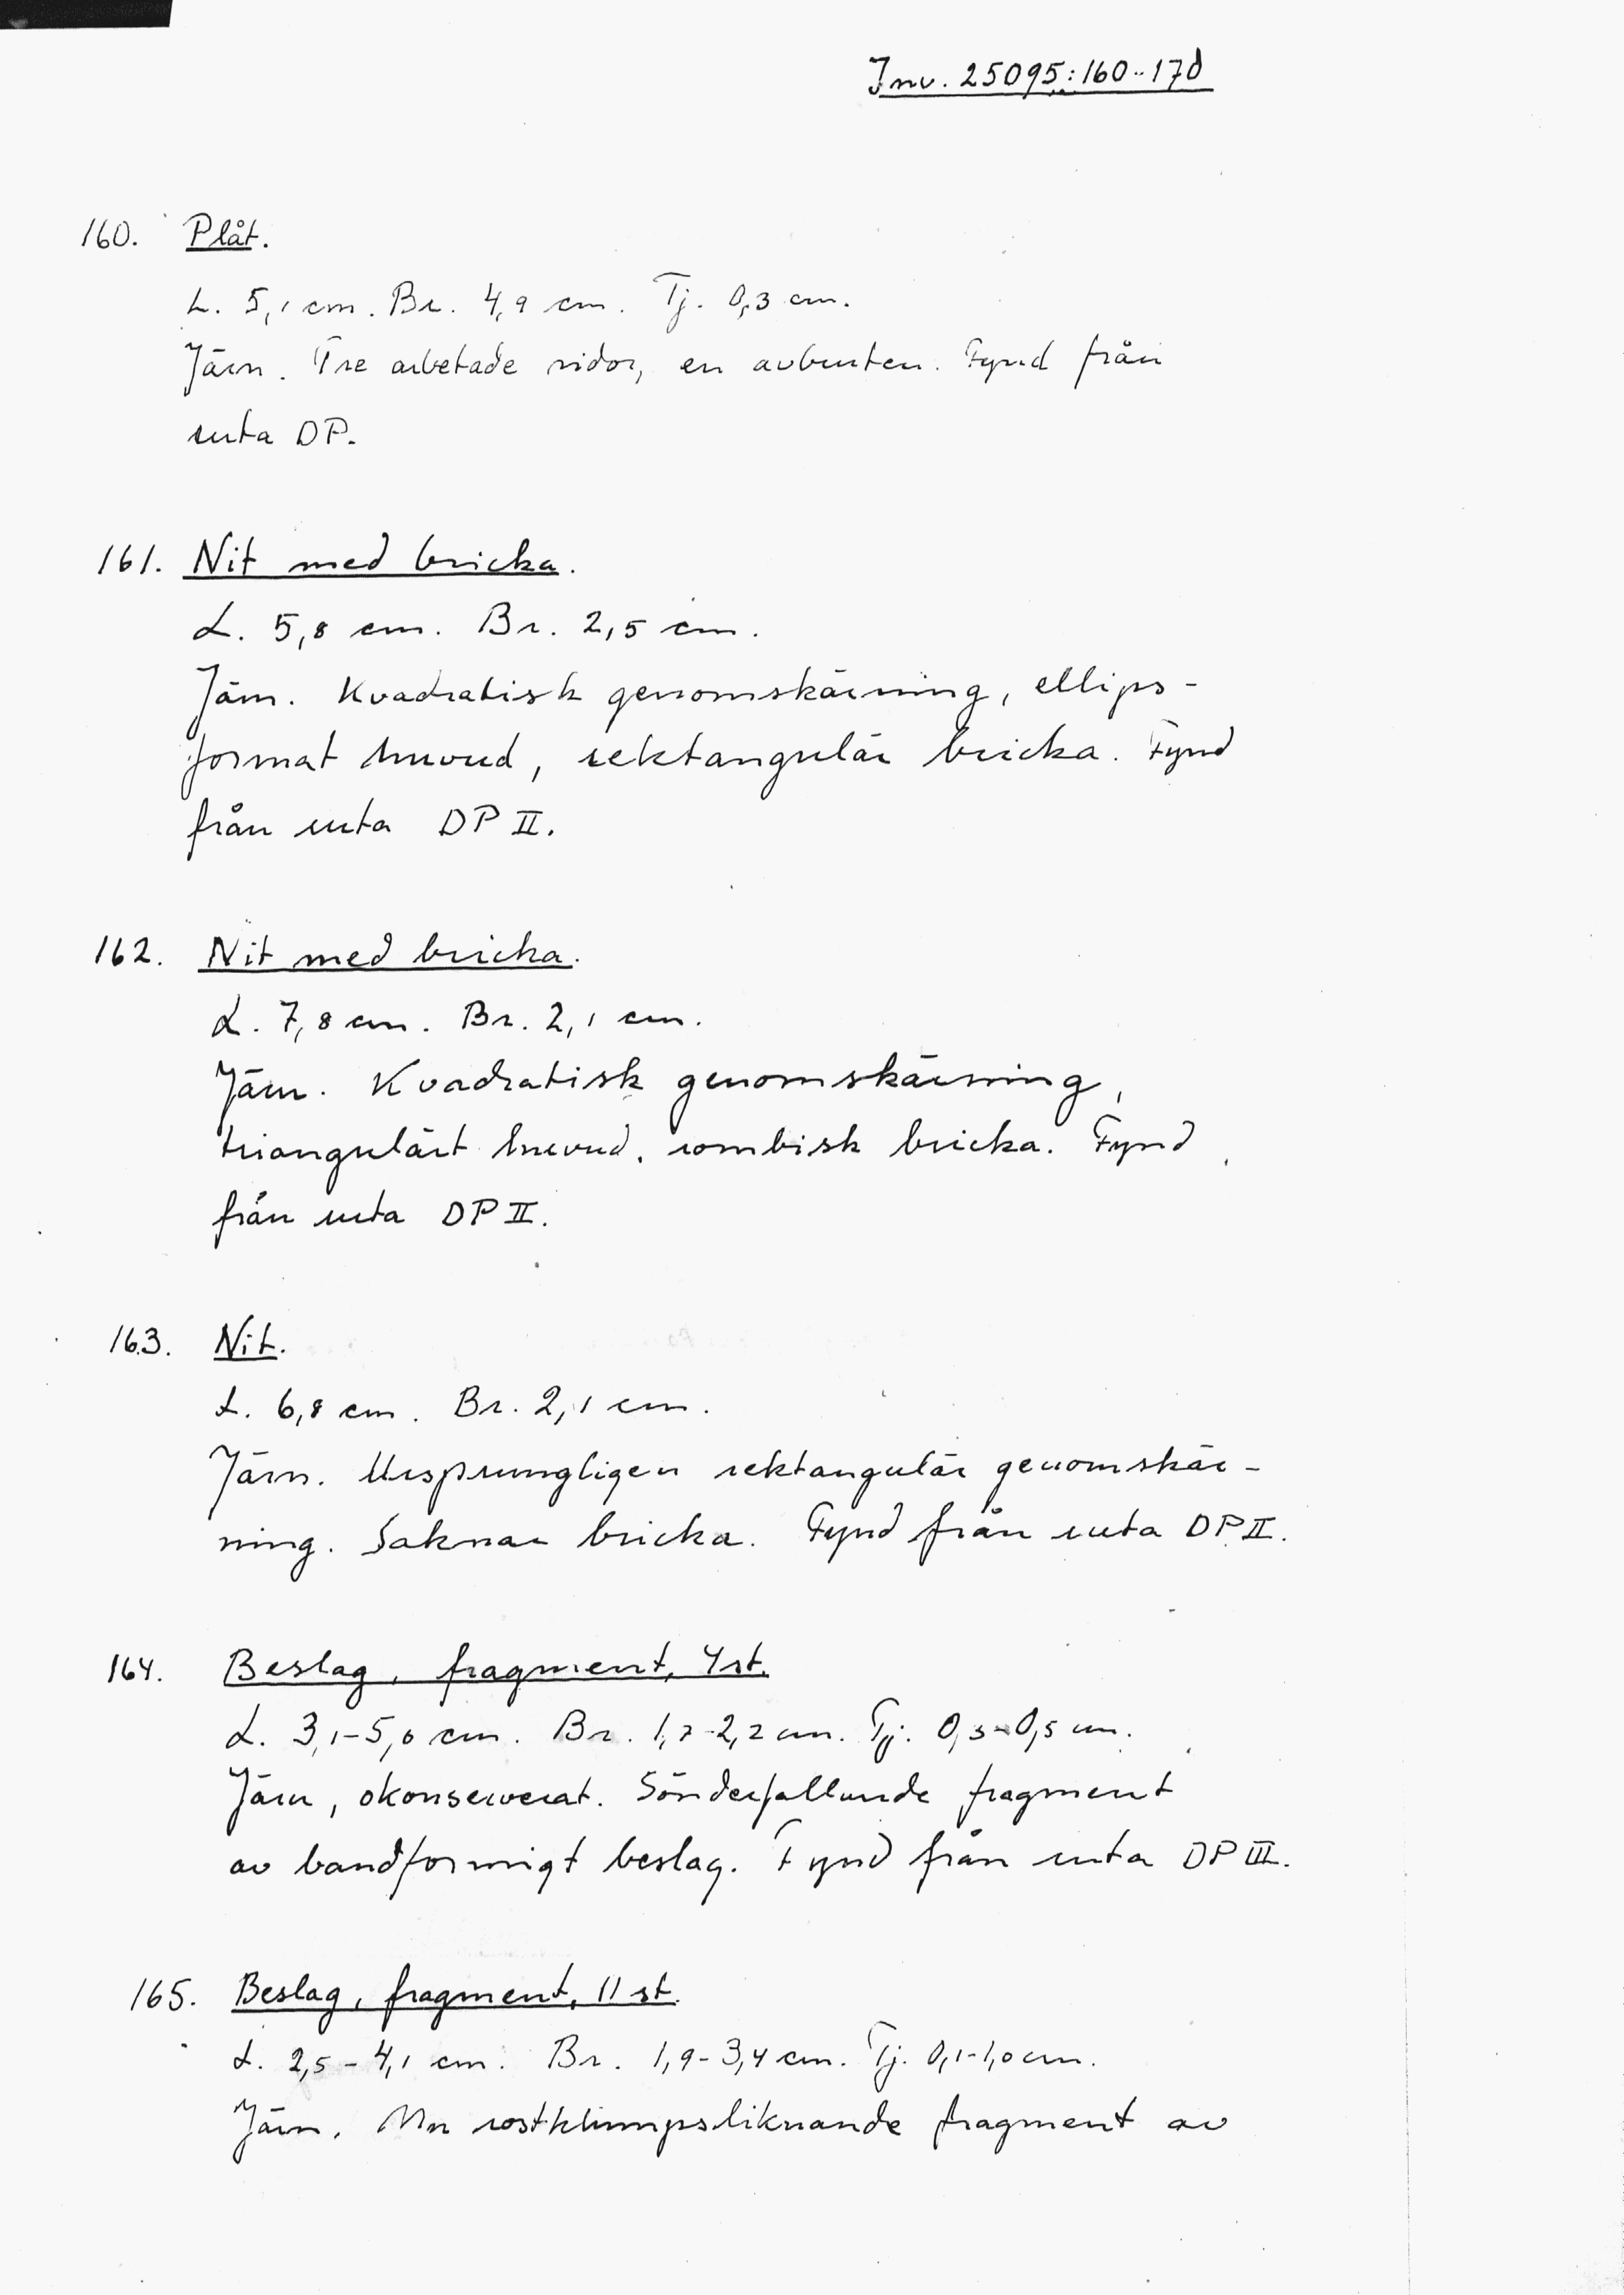 Inv. 25095:160-170
160. Plåt.
L. 5,1 cm. Br. 4,9 cm. Tj. 0,3 cm.
Järn. Tre arbetade sidor, en avbruten. Fynd från
ruta DP.
161. Nit med bricka.
L. 5,8 cm. Br. 2,5 cm.
Järn. Kvadratisk genomskärning, ellips-
format huvud, rektangulär bricka. Fynd
från ruta DP II.
162. Nit med bricka.
L. 7,8 cm. Br. 2,1 cm.
Järn. Kvadratisk genomskärning,
triangulärt huvud, rombisk bricka. Fynd
från ruta DP II.
163. Nit.
L. 6,8 cm. Br. 2,1 cm.
Järn. Ursprungligen rektangulär genomskär-
ning. Saknar bricka. Fynd från ruta DP II.
164. Beslag, fragment, 4 st.
L. 3,1-5,0 cm. Br. 1,7-2,2 cm. Tj. 0,3-0,5 cm.
Järn, okonserverat. Sönderfallande fragment
av bandformigt beslag. Fynd från ruta DP III.
165. Beslag, fragment, 11 st.
L. 2,5-4,1 cm. Br. 1,9-3,4 cm. Tj. 0,1-1,0 cm.
Järn. Mer rostklumpsliknande fragment av